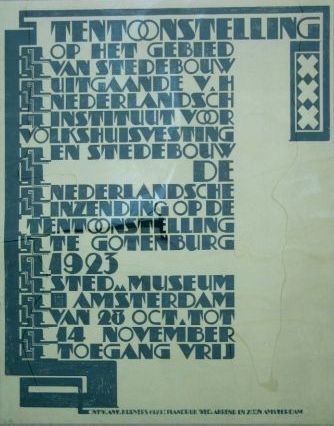 TENTOONSTELLING
OP HET GEBIED
VAN STEDEBOUW
UITGAANDE V.H
NEDERLANDSCH
INSTITUUT VOOR
VOLKSHUISVESTING
EN STEDEBOUW
DE
NEDERLANDSCHE
INZENDING OP DE
TENTOONSTELLING
TE GOTENBURG
1923
STED. MUSEUM
AMSTERDAM
VAN 28 OCT. TOT
14 NOVEMBER
TOEGANG VRIJ
ONTW. ANT. KURVERS STEENDRUK VAN AHREND EN ZOON AMSTERDAM